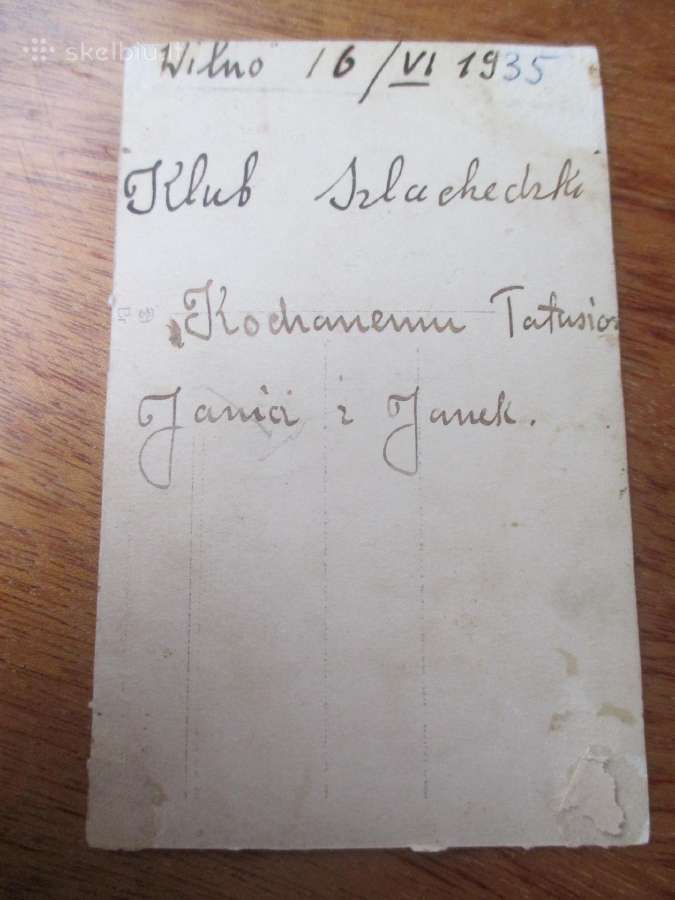 skelbiu.lt
Wilno 16/VI 1935
Klub Szlachedzki
Kochanemu Tatusiow
Janici i Janek.